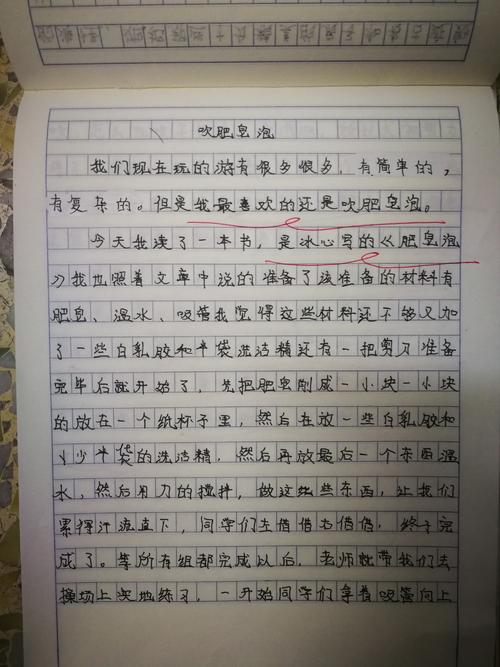 吹肥皂泡
我们现在玩的游有很多很多，有简单的，
有复杂的。但是我最喜欢的还是吹肥皂泡。
今天我读了一本书，是冰心写的《肥皂泡
》我也照着文章中说的准备了该准备的材料有
肥皂、温水、吸管我觉得这些材料还不够又加
了一些白乳胶和半袋洗洁精还有一把剪刀准备
完毕后就开始了，先把肥皂削成一小块一小块
的放在一个纸杯子里，然后在放一些白乳胶和
少半袋的洗洁精，然后再放最后一个东西温
水，然后用力的搅拌，做这些东西，让我们
累得汗流直下，同学们左借借右借借，终于完
成了。等所有组都完成以后，老师就带我们去
操场上实地练习，一开始同学们拿着吸管向上